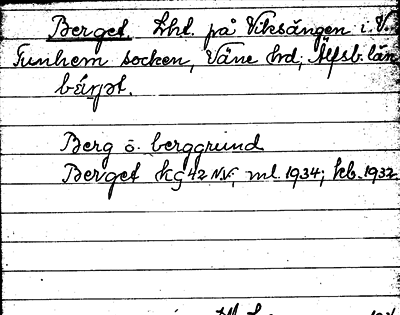 Berget. Lht. på Viksängen i V.
Tunhem socken, Väne hd; Älfsb. län
bær̥jət.
Berg o. berggrund
Berget kg 42 NV; ml. 1934; kb. 1932